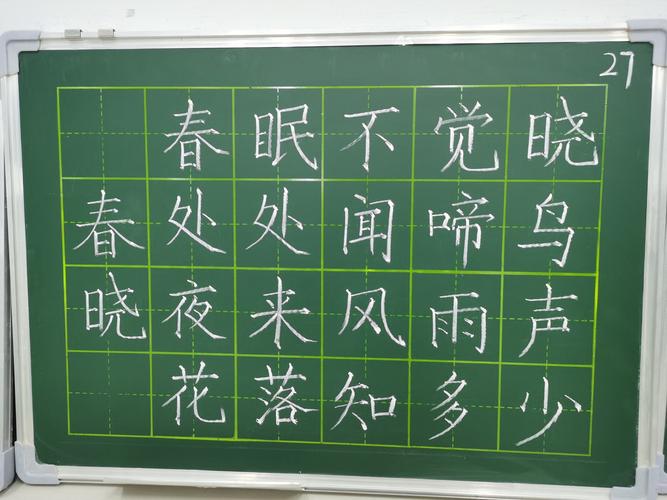 27
春晓
春眠不觉晓
处处闻啼鸟
夜来风雨声
花落知多少